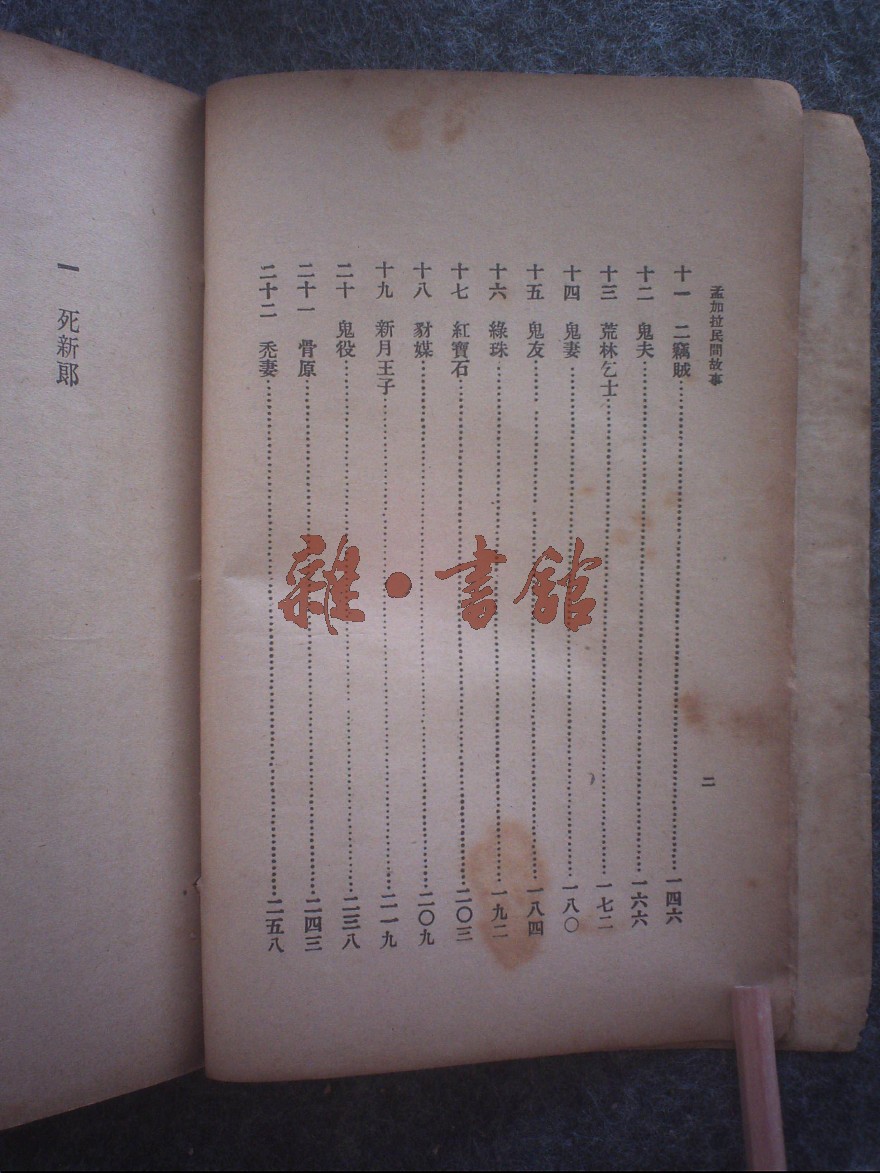 孟加拉民間故事
二
十一 二竊賊 一四六
十二 鬼夫 一六六
十三 荒林乞士 一七二
十四 鬼妻 一八〇
十五 鬼友 一八四
十六 綠珠 一九二
十七 紅寶石 二〇三
十八 豺媒 二〇九
十九 新月王子 二一九
二十 鬼役 二三八
二十一 骨原 二四三
二十二 禿妻 二五八
一 死新郎
雜·書館